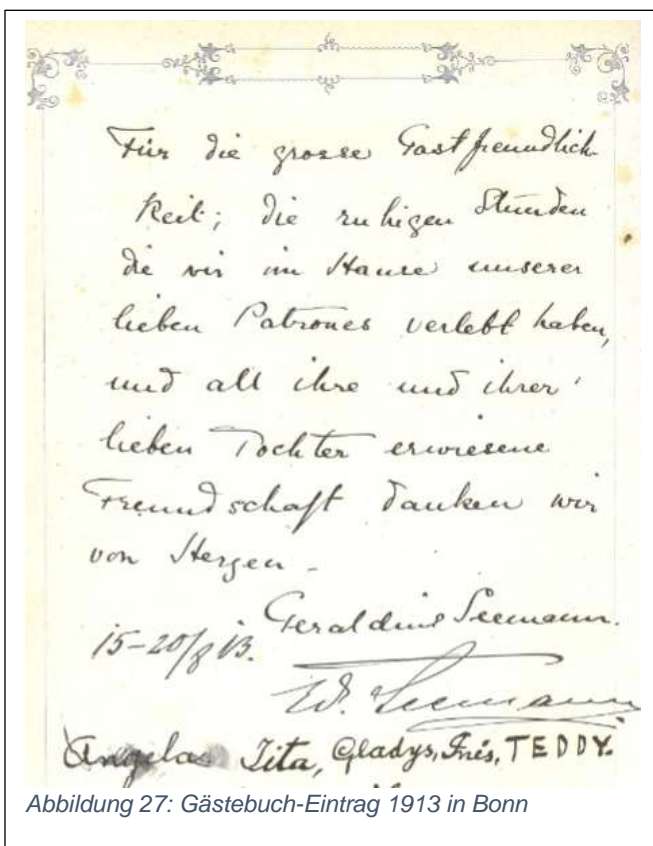 Für die grosse Gastfreundlich-
keit; die ruhigen Stunden
die wir im Hause unserer
lieben Patrones verlebt haben,
und all ihre und ihrer
lieben Tochter erwiesene
Freundschaft danken wir
von Herzen –
Geraldine Seemann.
15-20/8 13.
Ed. Seemann
Angela Tita, Gladys, Inés, TEDDY.
Abbildung 27: Gästebuch-Eintrag 1913 in Bonn